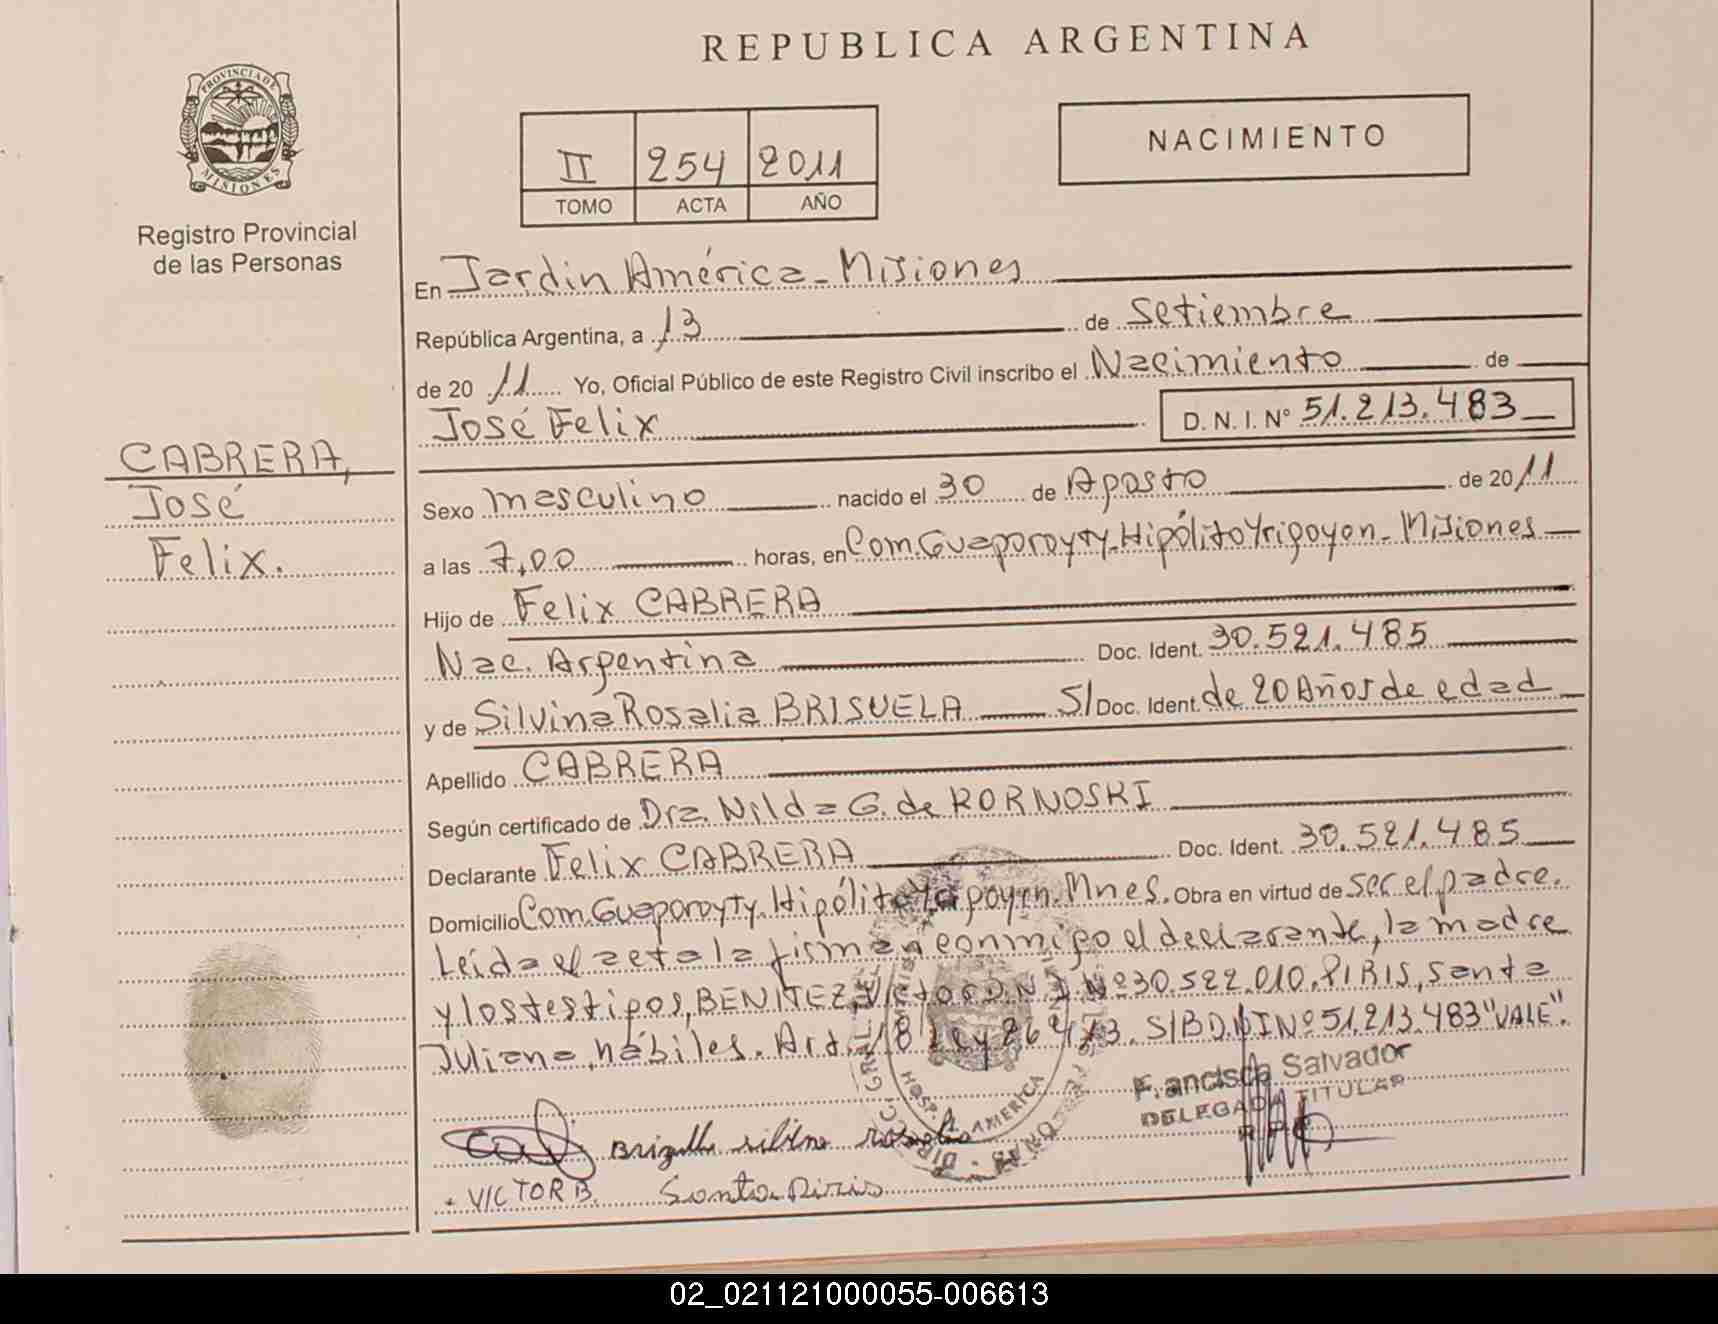 REPUBLICA ARGENTINA
PROVINCIA DE MISIONES
Registro Provincial
de las Personas
II 254 2011
TOMO ACTA AÑO
NACIMIENTO
En Jardin América - Misiones
República Argentina, a 13 de Setiembre
de 20 11 Yo, Oficial Público de este Registro Civil inscribo el Nacimiento de
José Felix D.N.I. Nº 51.213.483
CABRERA,
José
Felix.
Sexo masculino nacido el 30 de Agosto de 20 11
a las 7,00 horas, en Com. Guaporayty. Hipólito Yrigoyen - Misiones
Hijo de Felix CABRERA
Nac. Argentina Doc. Ident. 30.521.485
y de Silvina Rosalia BRISUELA S/ Doc. Ident. de 20 Años de edad
Apellido CABRERA
Según certificado de Dra. Nilda G. de KORNOSKI
Declarante Felix CABRERA Doc. Ident. 30.521.485
Domicilio Com. Guaporoyty. Hipólito Yrigoyen. Mnes. Obra en virtud de ser el padre.
Leída el acta la firman conmigo el declarante, la madre
y los testigos, BENITEZ, Victor D.N.I. Nº 30.522.010. PIRIS, Santa
Juliana, hábiles. Art. 18 Ley 26413. S/B D.N.I Nº 51.213.483 "VALE".
Francisca Salvador
DELEGADA TITULAR
HOSP. AMERICA
Brizuella silvina Rosalia
VICTOR B. Santa Piris
02_021121000055-006613